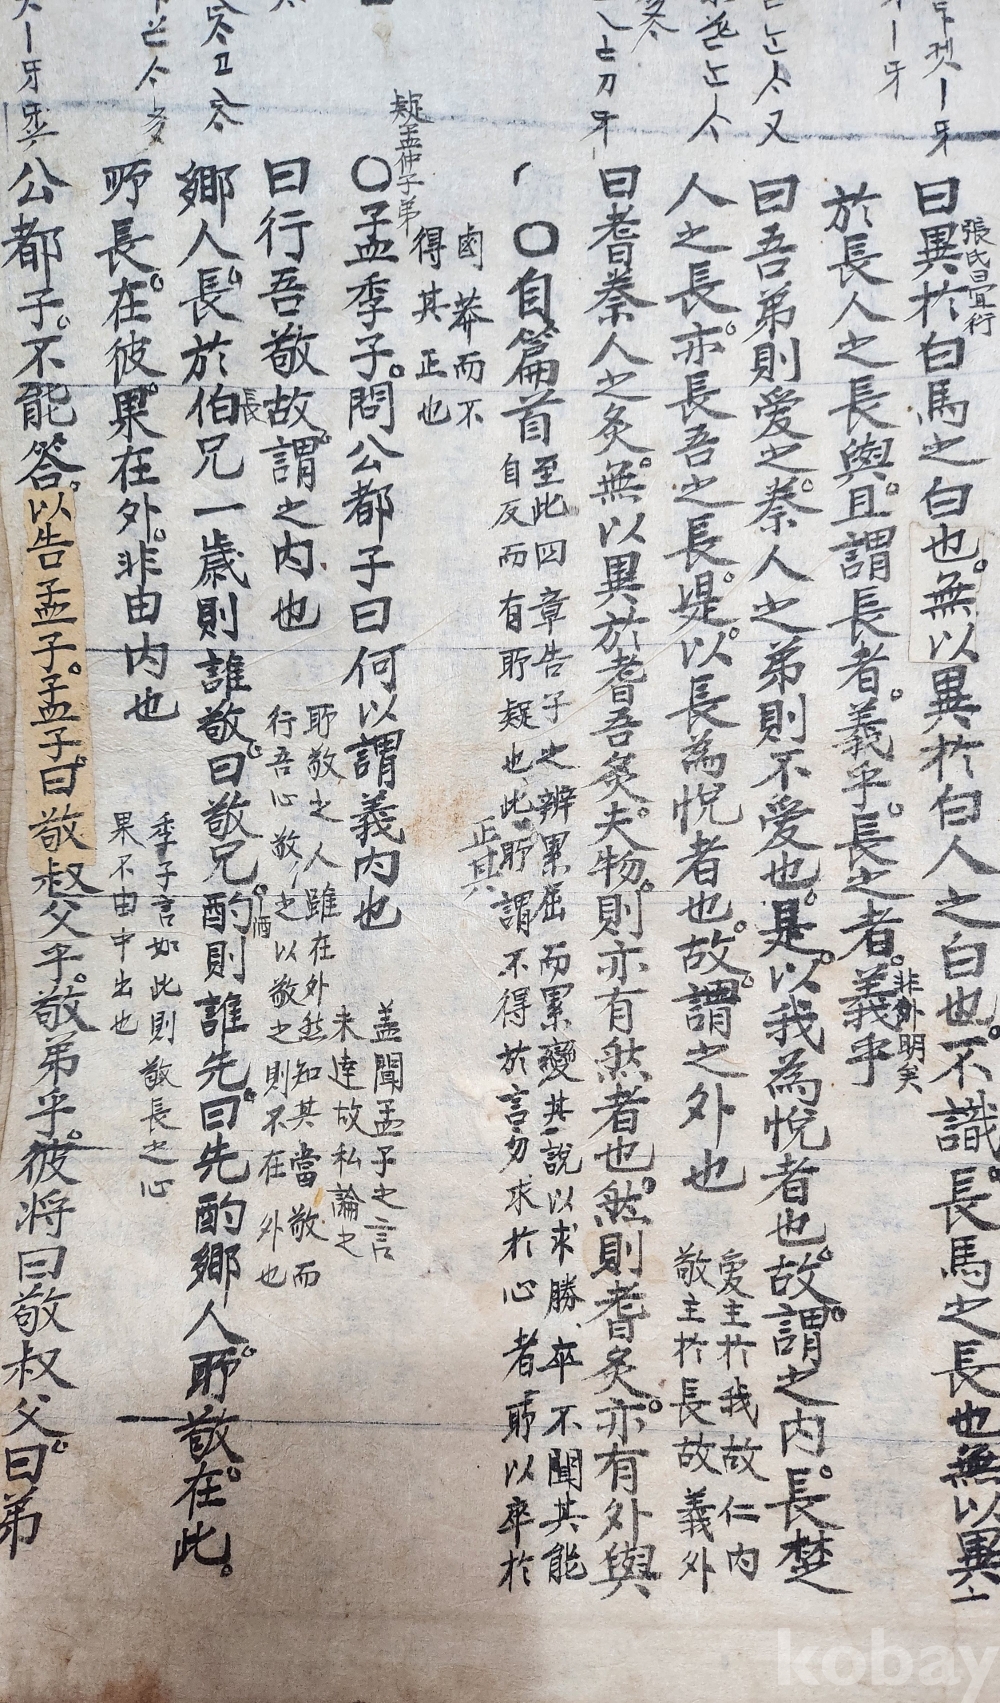 曰異於白馬之白也無以異於白人之白也不識長馬之長也無以異
張氏曰
於長人之長與且謂長者義乎長之者義乎
非外明矣
曰吾弟則愛之秦人之弟則不愛也是以我為悅者也故謂之內長楚
人之長亦長吾之長是以長為悅者也故謂之外也
愛主於我故仁內
敬主於長故義外
曰耆秦人之炙無以異於耆吾炙夫物則亦有然者也然則耆炙亦有外與
○自篇首
至此四章告子之辨累屈而累變其說以求勝卒不聞其能
自反而有所疑也此所謂不得於言勿求於心者所以卒於
正其
鹵莽而不
得其正也
疑孟仲子弟
○孟季子問公都子曰何以謂義內也
盖聞孟子之言
未達故私論之
曰行吾敬故謂之內也
所敬之人雖在外然知其當敬而
行吾心敬之以敬之則不在外也
鄉人長於伯兄一歲則誰敬曰敬兄酌則誰先曰先酌鄉人所敬在此
長
酒
所長在彼果在外非由內也
季子言如此則敬長之心
果不由中出也
公都子不能答以告孟子孟子曰敬叔父乎敬弟乎彼將曰敬叔父曰弟
kobay